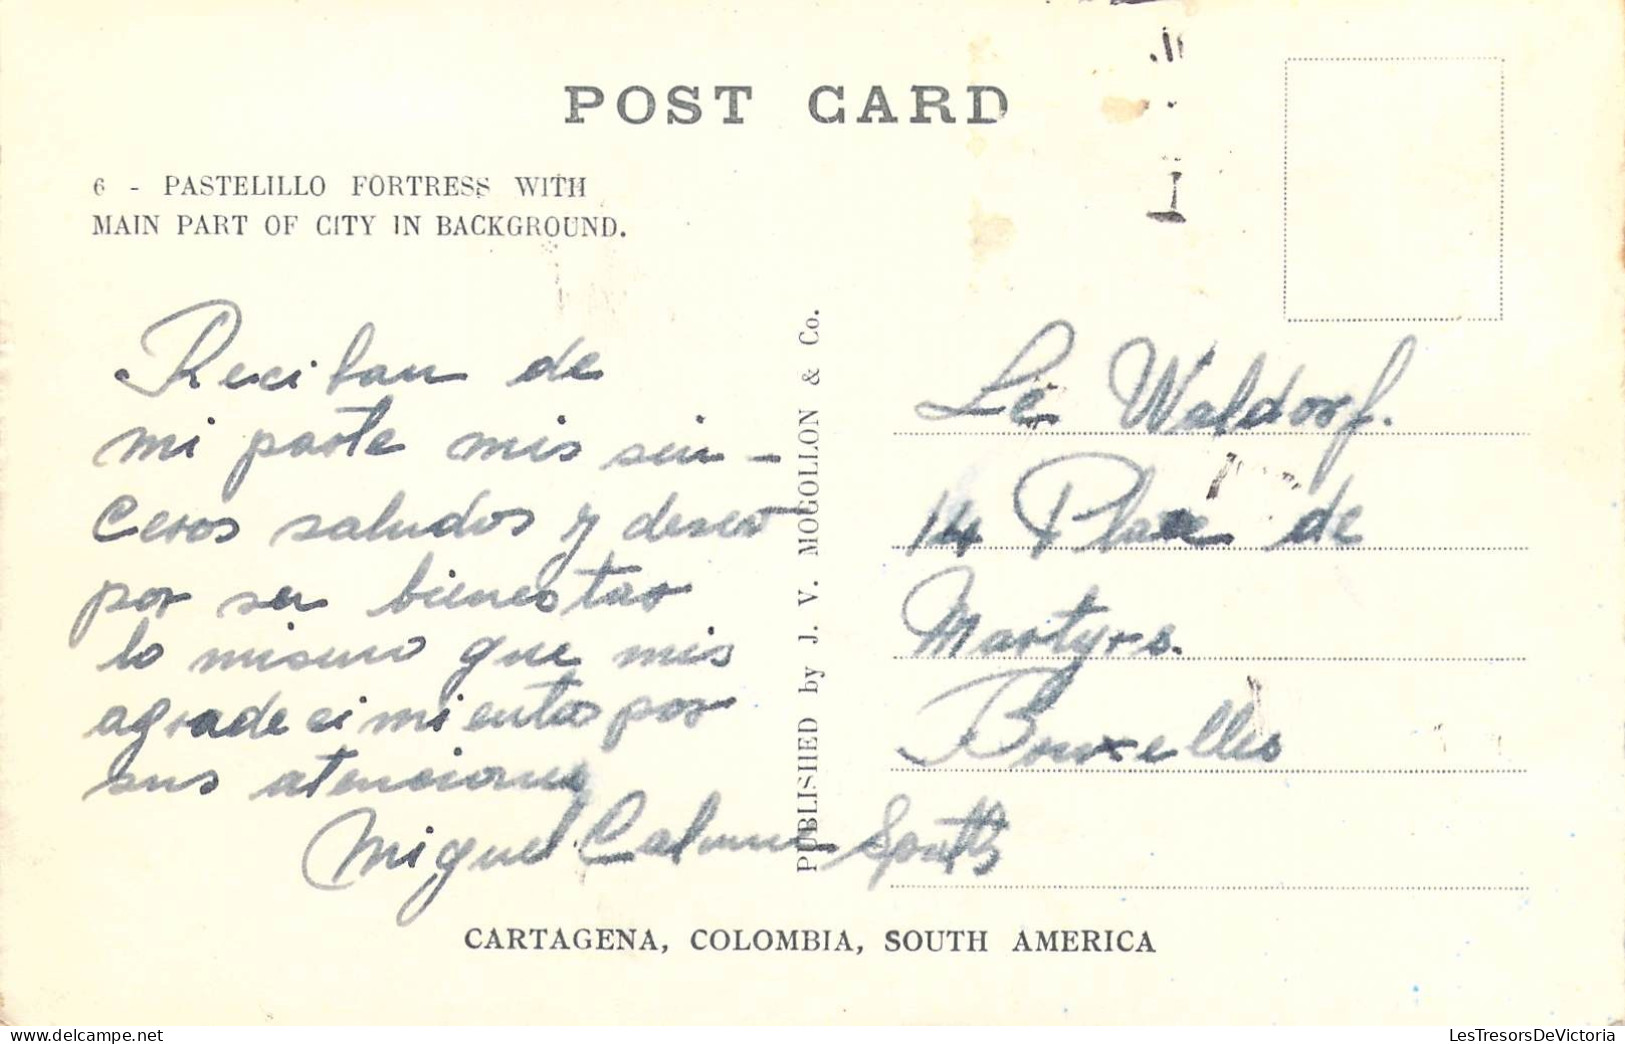 POST CARD
6 - PASTELILLO FORTRESS WITH
MAIN PART OF CITY IN BACKGROUND.
Reciban de
mi parte mis sin-
ceros saludos y deseo
por su bienestar
lo mismo que mis
agradecimientos por
sus atenciones
Miguel
PUBLISHED by J. V. MOGOLLON & Co.
Le Waldorf.
14 Place de
Martyrs.
Bruxelles
CARTAGENA, COLOMBIA, SOUTH AMERICA
LesTresorsDeVictoria